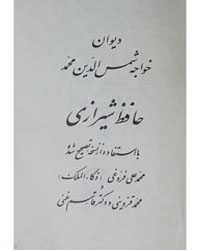 دیوان
خواجه شمس الدین محمد
حافظ شیرازی
با استفاده از نسخه تصحیح شده
محمد علی فروغی (ذکاء الملک)
و
محمد قزوینی و دکتر قاسم غنی